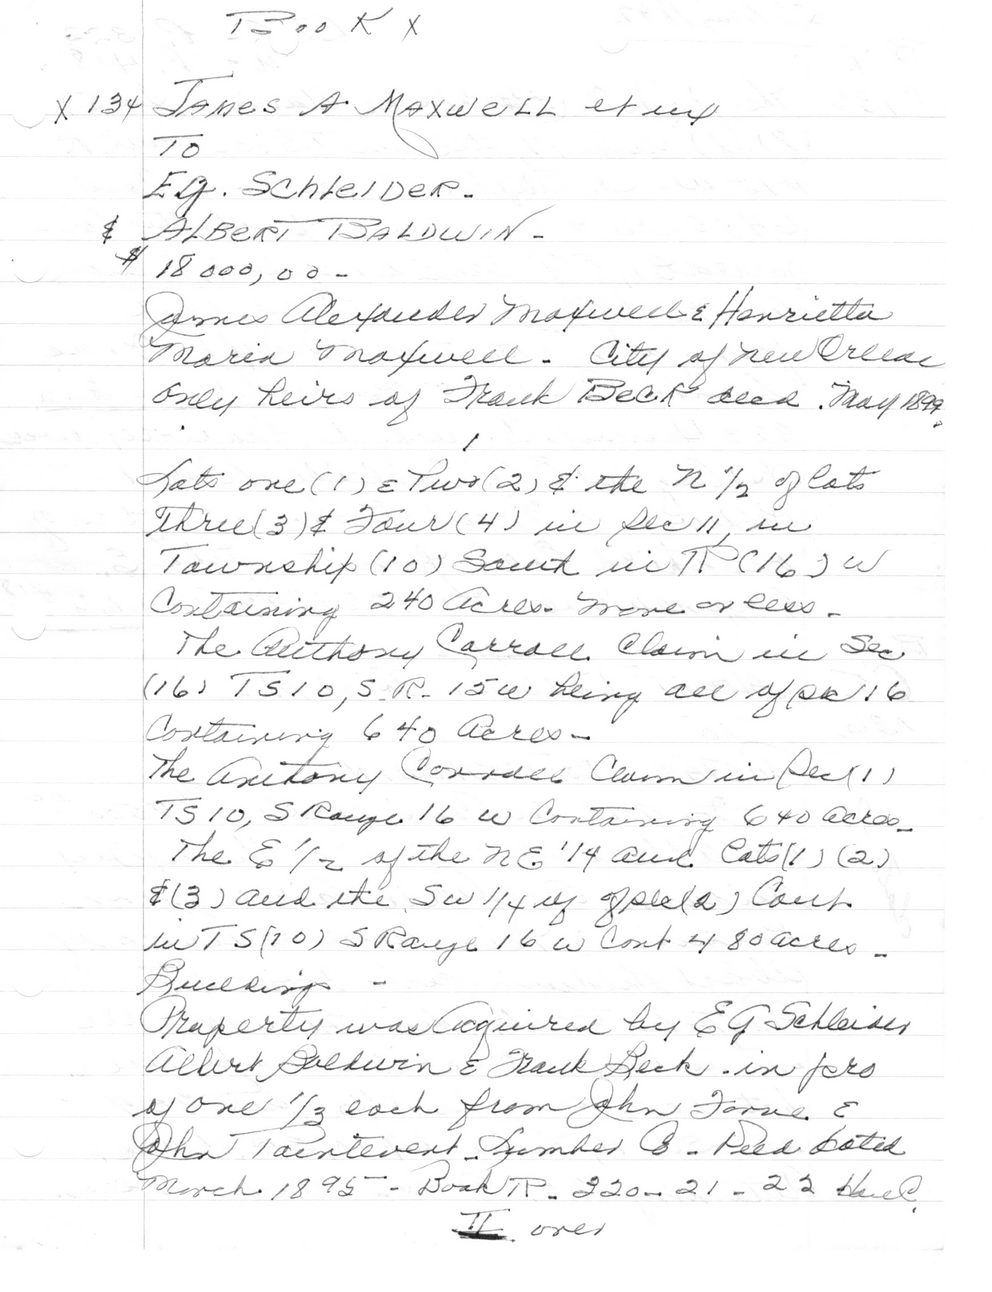 Book X
X 134 James A Maxwell et ux
To
E.G. Schleider -
& Albert Baldwin -
$ 18000,00 -
James Alexander Maxwell & Henrietta
Maria Maxwell - City of New Orleans
only heirs of Frank Beck decd. May 1899
I
Lots one (1) & Two (2) & the N 1/2 of Lots
three (3) & Four (4) in Sec 11, in
Township (10) South in R (16) W
Containing 240 Acres more or less -
The Anthony Carroll Claim in Sec
(16) TS 10, S R- 15 W being all of Sec 16
Containing 640 Acres -
The Anthony Carroll Claim in Sec (1)
TS 10, S Range 16 W Containing 640 acres -
The E 1/2 of the NE 1/4 and Lots (1) (2)
& (3) and the SW 1/4 of Sec (2) Cont
in TS (10) S Range 16 W Cont 480 acres -
Building -
Property was Acquired by E G Schleider
Albert Baldwin & Frank Beck - in pro
of one 1/3 each from John Favre &
John Poitevent Lumber Co - Deed Dated
March 1895 - Book R - 220 - 21 - 22 Han C.
II over